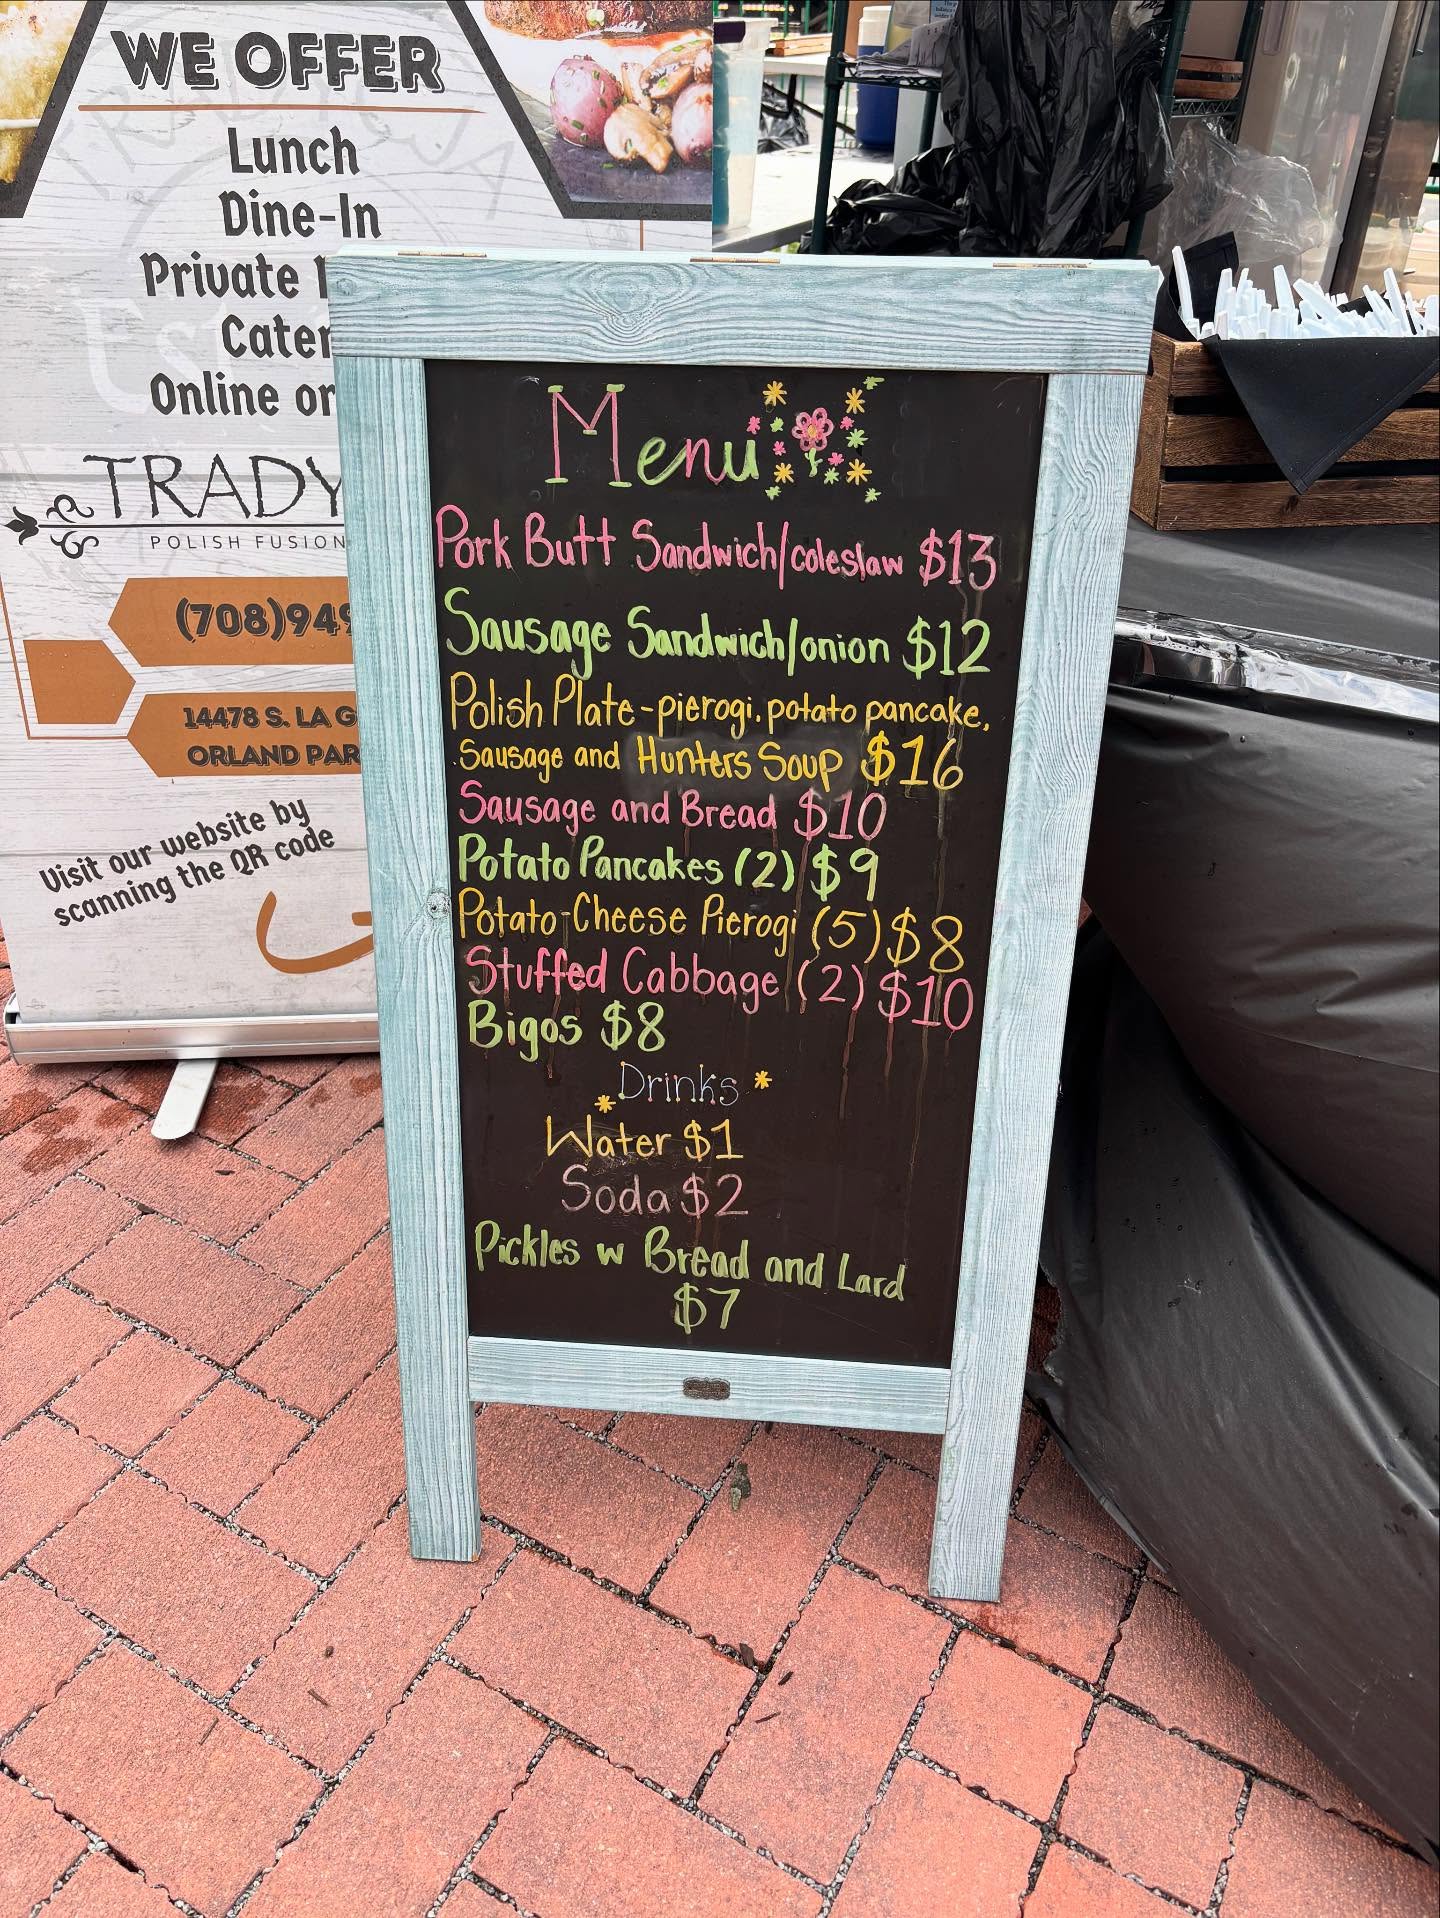 WE OFFER
Lunch
Dine-In
Private
Cater
Online or
TRADY
POLISH FUSION
(708)949
14478 S. LA G
ORLAND PAR
Visit our website by
scanning the QR code
Menu
Pork Butt Sandwich/coleslaw $13
Sausage Sandwich/onion $12
Polish Plate-pierogi, potato pancake,
Sausage and Hunters Soup $16
Sausage and Bread $10
Potato Pancakes (2) $9
Potato-Cheese Pierogi (5) $8
Stuffed Cabbage (2) $10
Bigos $8
Drinks
Water $1
Soda $2
Pickles w Bread and Lard
$7